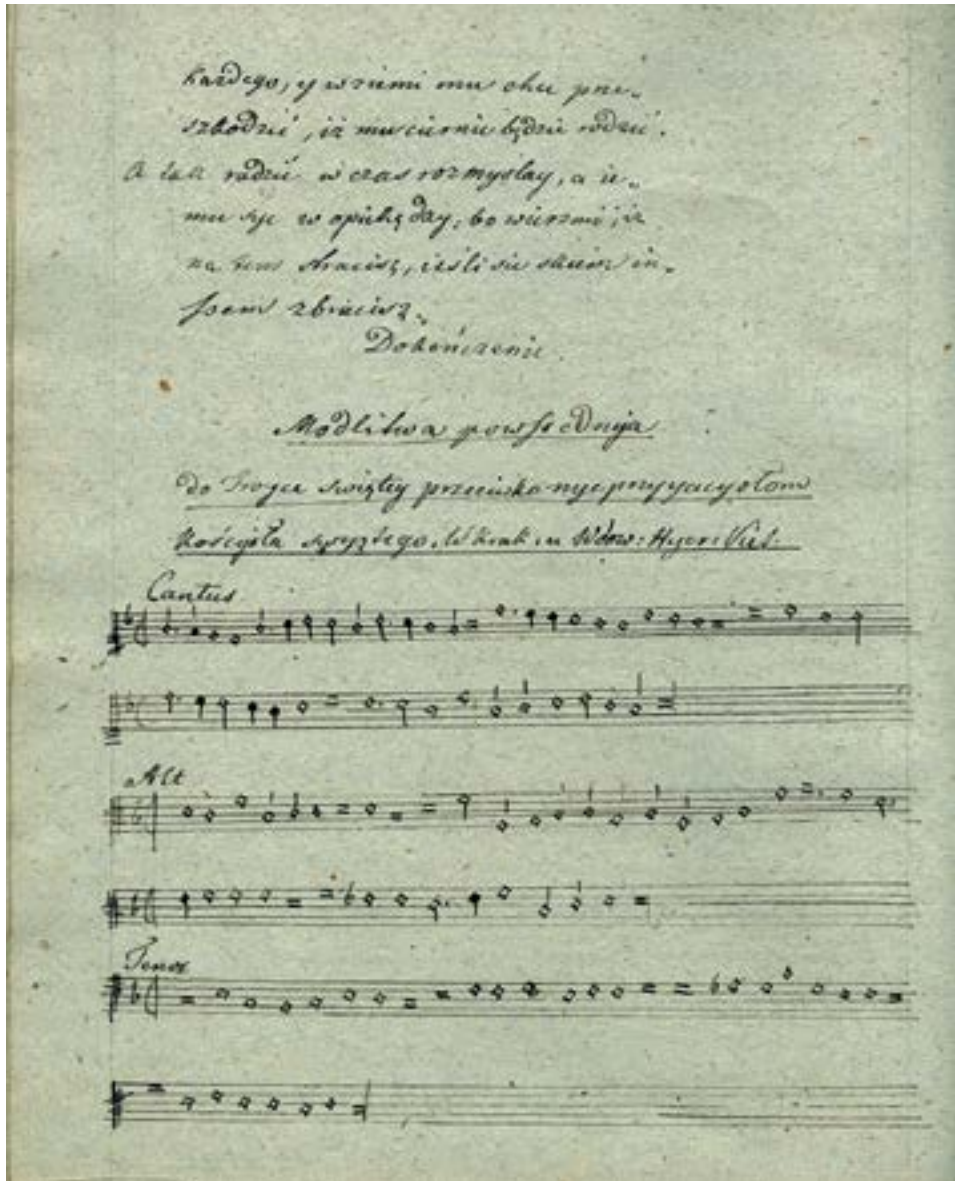 Każdego, y wziemi mu chce prze„
szkodzić, iż mu ciernie będzie rodzić.
A tak radzić w czas rozmyslay, a ie„
mu się w opiekę day, bo wierz mi, iż
na tem stracisz, ieśli sie
zbracisz„
Dokończenie.
Modlitwa powssednija
do Troyce swiętey przeciwko nyeprzyyacyołom
Kościoła swyętego. W Krak: u Wdow: Hyer: Viet.
Cantus
Alt
Tenor